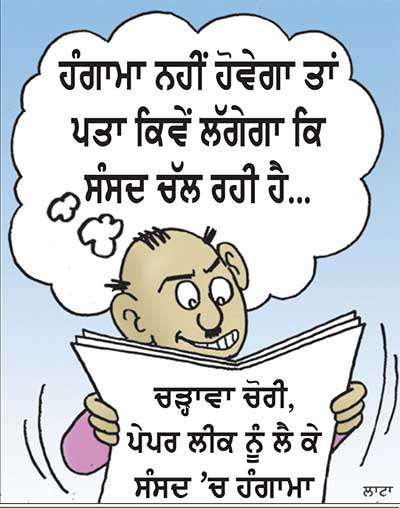 ਹੰਗਾਮਾ ਨਹੀਂ ਹੋਵੇਗਾ ਤਾਂ
ਪਤਾ ਕਿਵੇਂ ਲੱਗੇਗਾ ਕਿ
ਸੰਸਦ ਚੱਲ ਰਹੀ ਹੈ...
ਚੜ੍ਹਾਵਾ ਚੋਰੀ,
ਪੇਪਰ ਲੀਕ ਨੂੰ ਲੈ ਕੇ
ਸੰਸਦ ’ਚ ਹੰਗਾਮਾ
ਲਾਟਾ